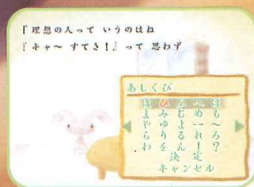 『理想の人って いうのはね
『キャ～ すてき！』って 思わず
あしくび
ほ ひ ふ へ ほ
ま み む め も
や ゆ よ ー ～
ら り る れ ろ
わ を ん ！ ？
決 定
キャンセル